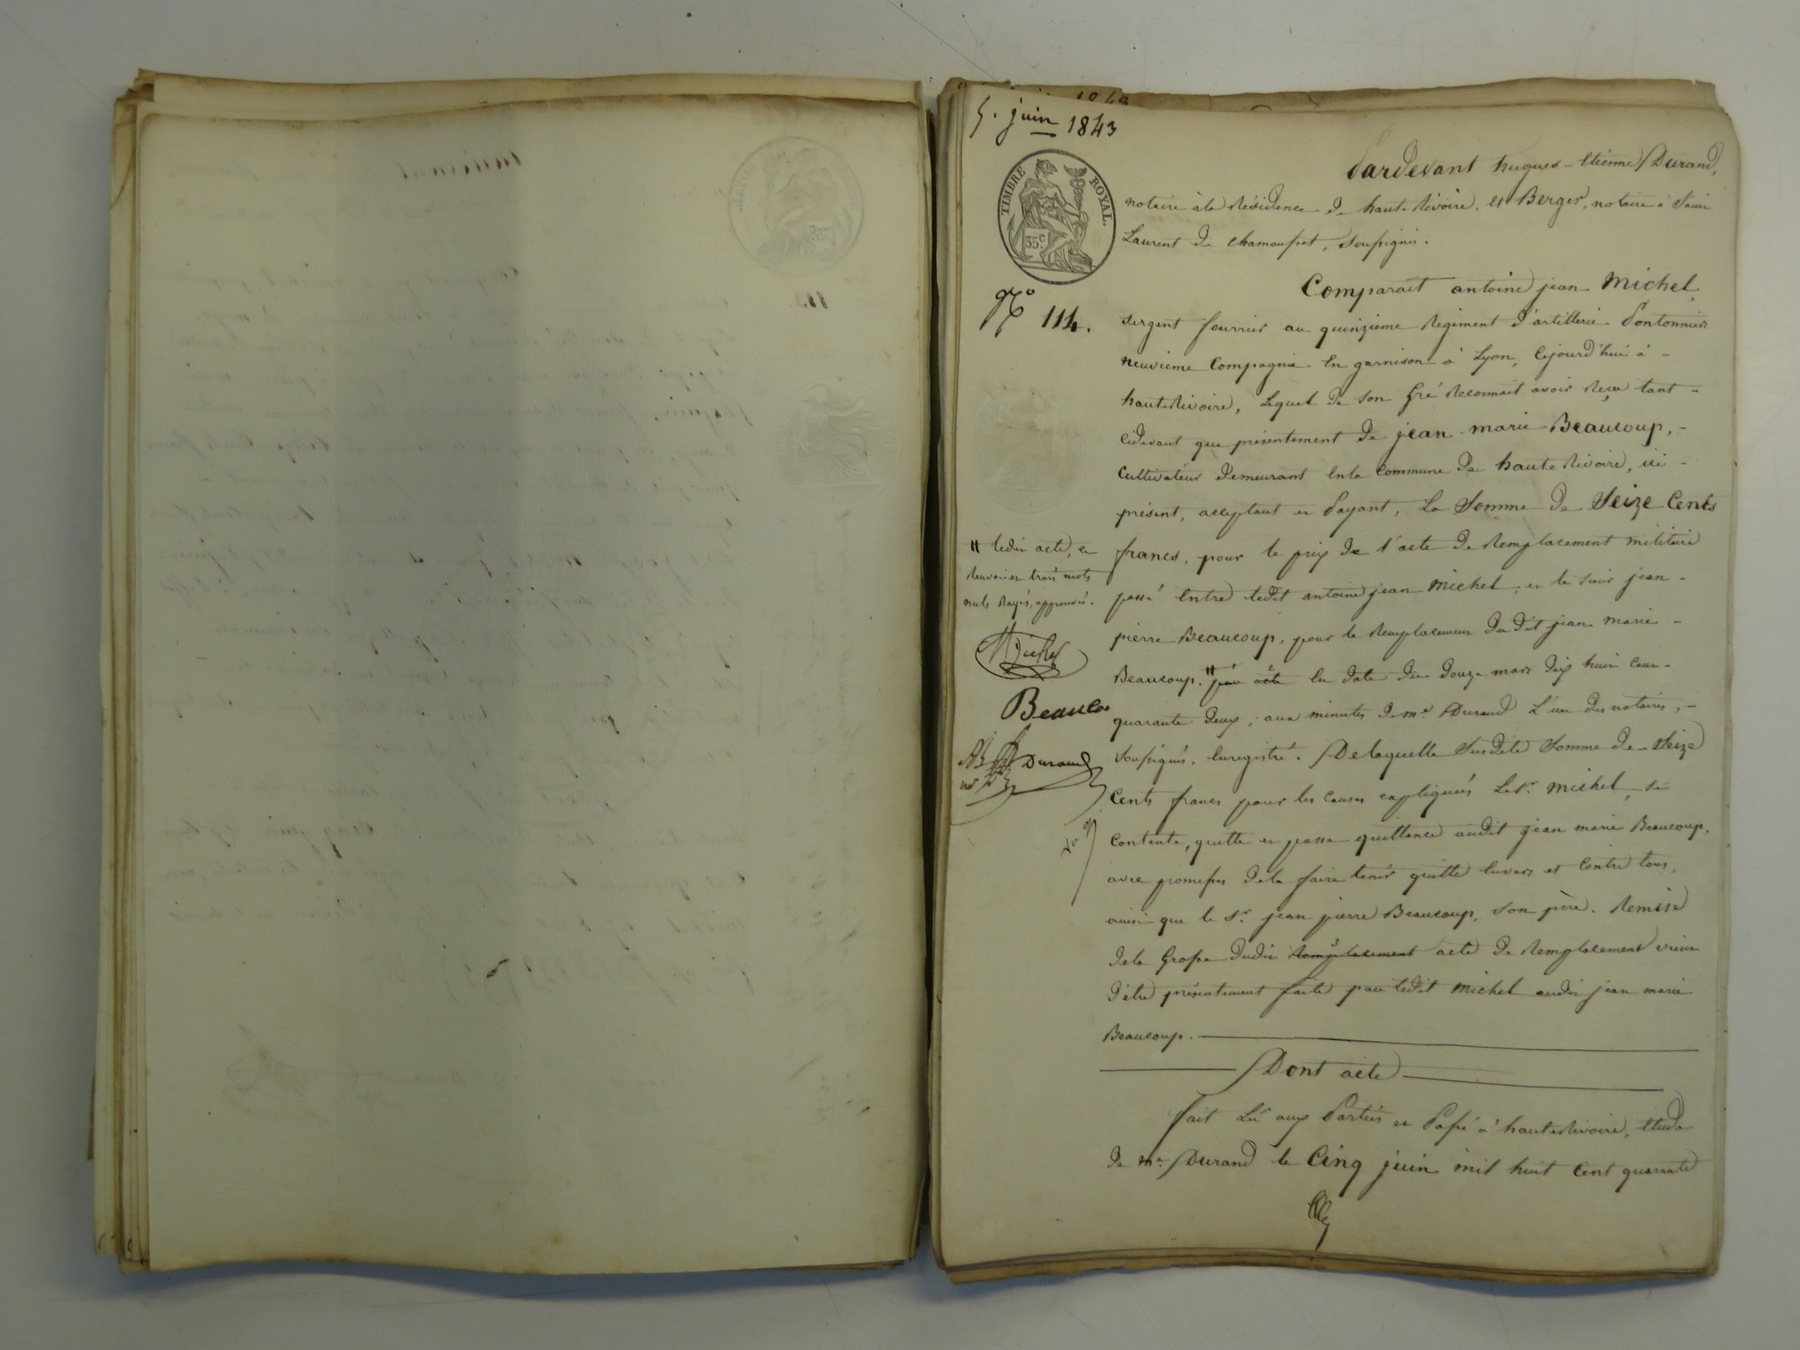 5. juin 1843
TIMBRE ROYAL.
35c
No 114.
Pardevant hugues-etienne Durand,
notaire à la Résidence de haute Rivoire, et Berger, notaire à Saint
Laurent de chamousset, soussignés.
Comparait antoine jean Michel,
sergent fourrier au quinzieme Regiment d'artillerie Pontonniers
neuvieme Compagnie en garnison à Lyon, cejourd'hui à -
haute Rivoire, Lequel de son gré Reconnait avoir reçu tant -
cidevant que présentement de jean marie Beaucoup, -
Cultivateur demeurant en la Commune de haute Rivoire, ici -
présent, acceptant et Payant, La Somme de Seize Cents
francs, pour le prix de l'acte de Remplacement militaire
passé entre ledit antoine jean Michel, et le sieur jean -
pierre Beaucoup, pour le Remplacement dudit jean marie -
Beaucoup, " par acte en date du douze mars dix huit cent -
quarante deux, aux minutes de me Durand L'un des notaires, -
soussignés, enregistré. De laquelle susdite Somme de Seize
Cents francs pour les causes expliquées Le sr. Michel, se
contente, quitte et passe quittance audit jean marie Beaucoup,
avec promesses de le faire tenir quitte envers et contre tous,
ainsi que le sr. jean pierre Beaucoup, son père. Remise
de la Grosse dudit Remplacement acte de Remplacement vient
d'être présentement faite par ledit Michel audit jean marie
Beaucoup.
Dont acte
fait Lu aux Parties et Passé à haute Rivoire, etude
de me. Durand le Cinq juin mil huit Cent quarante
" ledit acte, et
Renvoi et trois mots
nuls Rayés, approuvés.
Michel
Beaucou
Durand